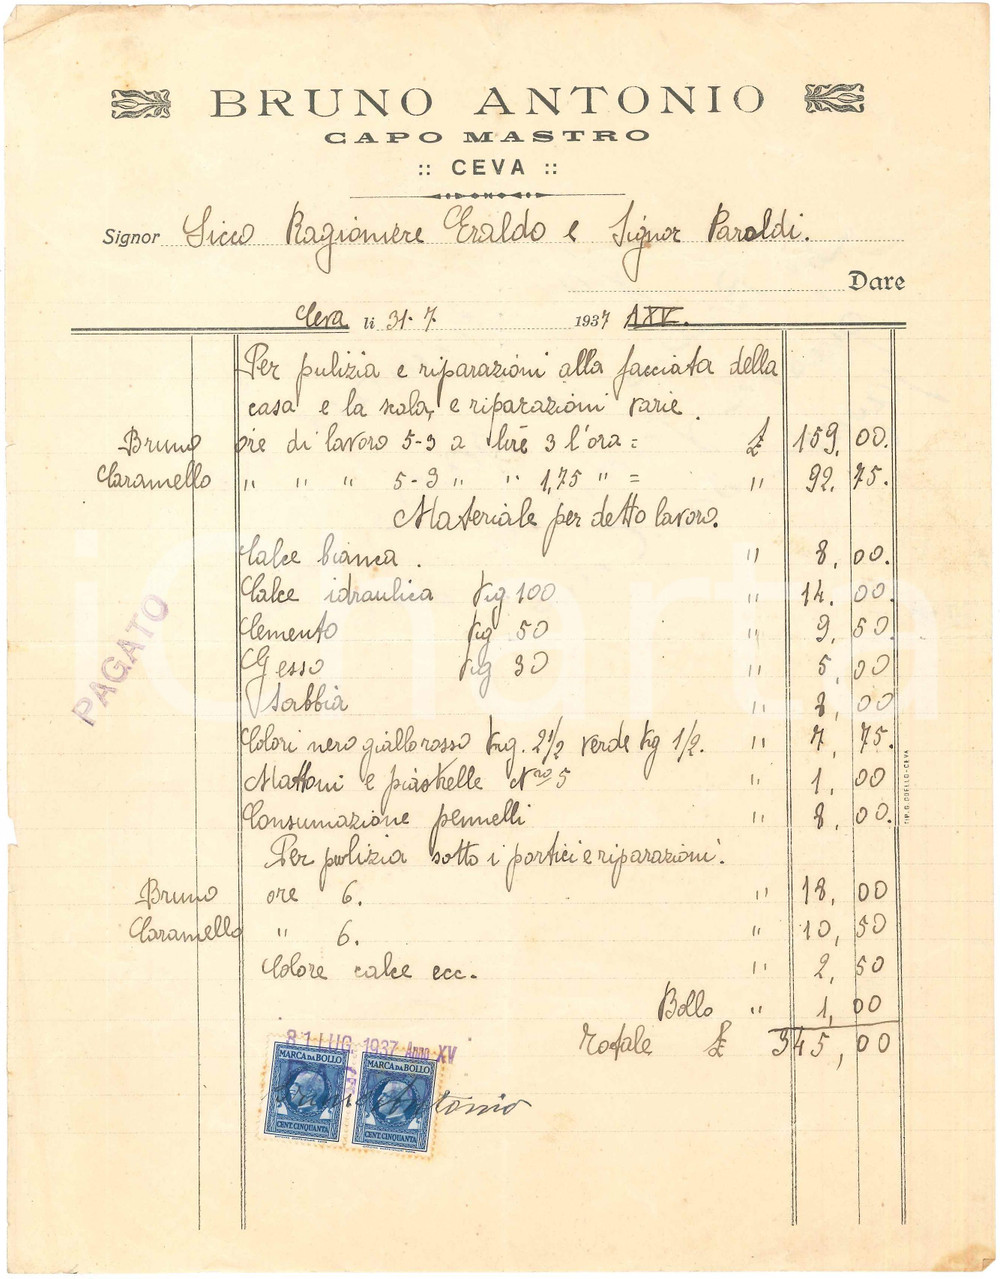 BRUNO ANTONIO
CAPO MASTRO
:: CEVA ::
Signor Sicco Ragioniere Eraldo e Signor Paroldi.
Dare
Ceva li 31-7 1937 AXV.
Per pulizia e riparazioni alla facciata della
casa e la scala, e riparazioni varie.
Bruno ore di lavoro 5-3 a lire 3 l'ora = £ 159,00.
Caramello " " " 5-3 " " 1,75 " = " 92,75.
Materiale per detto lavoro.
Calce bianca. " 8,00.
Calce idraulica Kig 100 " 14.00.
Cemento Kig 50 " 9,50.
Gesso Kig 30 " 5,00
Sabbia " 8,00
Colori nero giallo rosso Kig. 2 1/2 verde Kg 1/2. " 7,75.
Mattoni e piastrelle Nro 5 " 1,00
Consumazione pennelli " 8,00.
Per pulizia sotto i portici e riparazioni.
Bruno ore 6. " 18,00
Caramello " 6. " 10,50
Colore calce ecc. " 2,50
Bollo " 1,00
Totale £ 345,00
PAGATO
TIP. G. ODELLO - CEVA
31 LUG. 1937 Anno XV
MARCA DA BOLLO
MARCA DA BOLLO
Antonio
CENT. CINQUANTA
CENT. CINQUANTA
iCharta